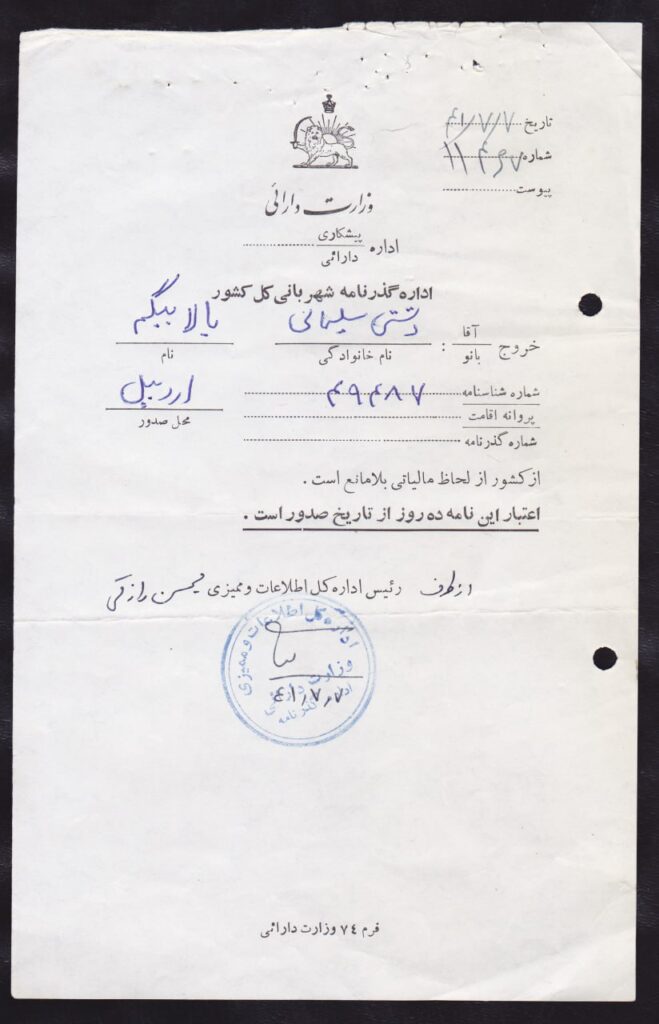 تاریخ ۴۱/۷/۷
شماره
پیوست
وزارت دارائی
اداره پیشکاری
دارائی
اداره گذرنامه شهربانی کل کشور
خروج آقا
بانو : دشتی سلیمانی بالا بیگم
نام خانوادگی نام
شماره شناسنامه ۴۹۴۸۷ اردبیل
پروانه اقامت محل صدور
شماره گذرنامه
از کشور از لحاظ مالیاتی بلامانع است .
اعتبار این نامه ده روز از تاریخ صدور است .
از طرف رئیس اداره کل اطلاعات و ممیزی
اداره کل اطلاعات و ممیزی
وزارت دارائی
گذرنامه
۴۱/۷/۷
فرم ۷۴ وزارت دارائی